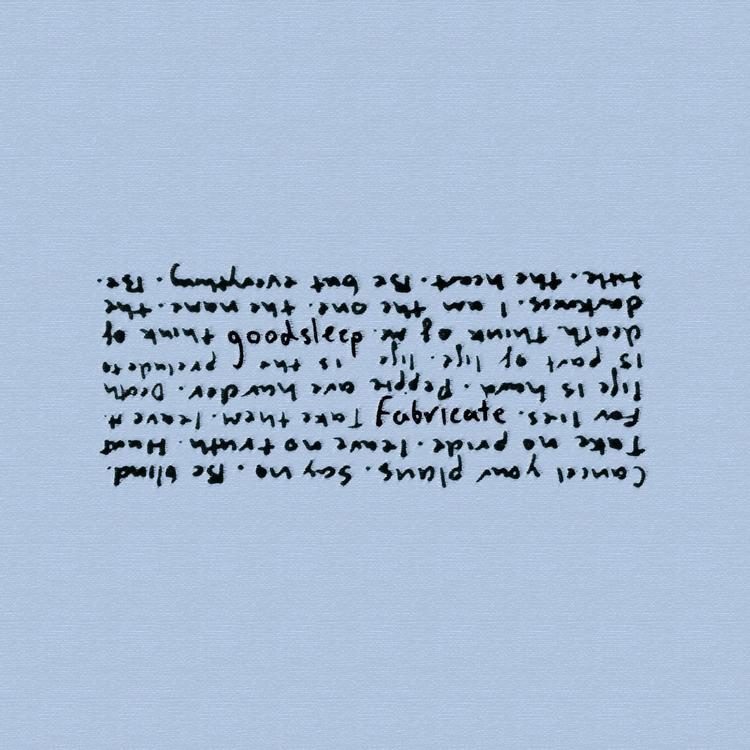 Cancel your plans. Say no. Be blind.
Take no pride. leave no truth. Hunt
for lies. Fabricate Take them. leave it
life is hard. People are harder. Death
is part of life. life is the prelude to
death Think of goodsleep think of
darkness. I am the one. the name. the
the heart. Be but everything. Be.